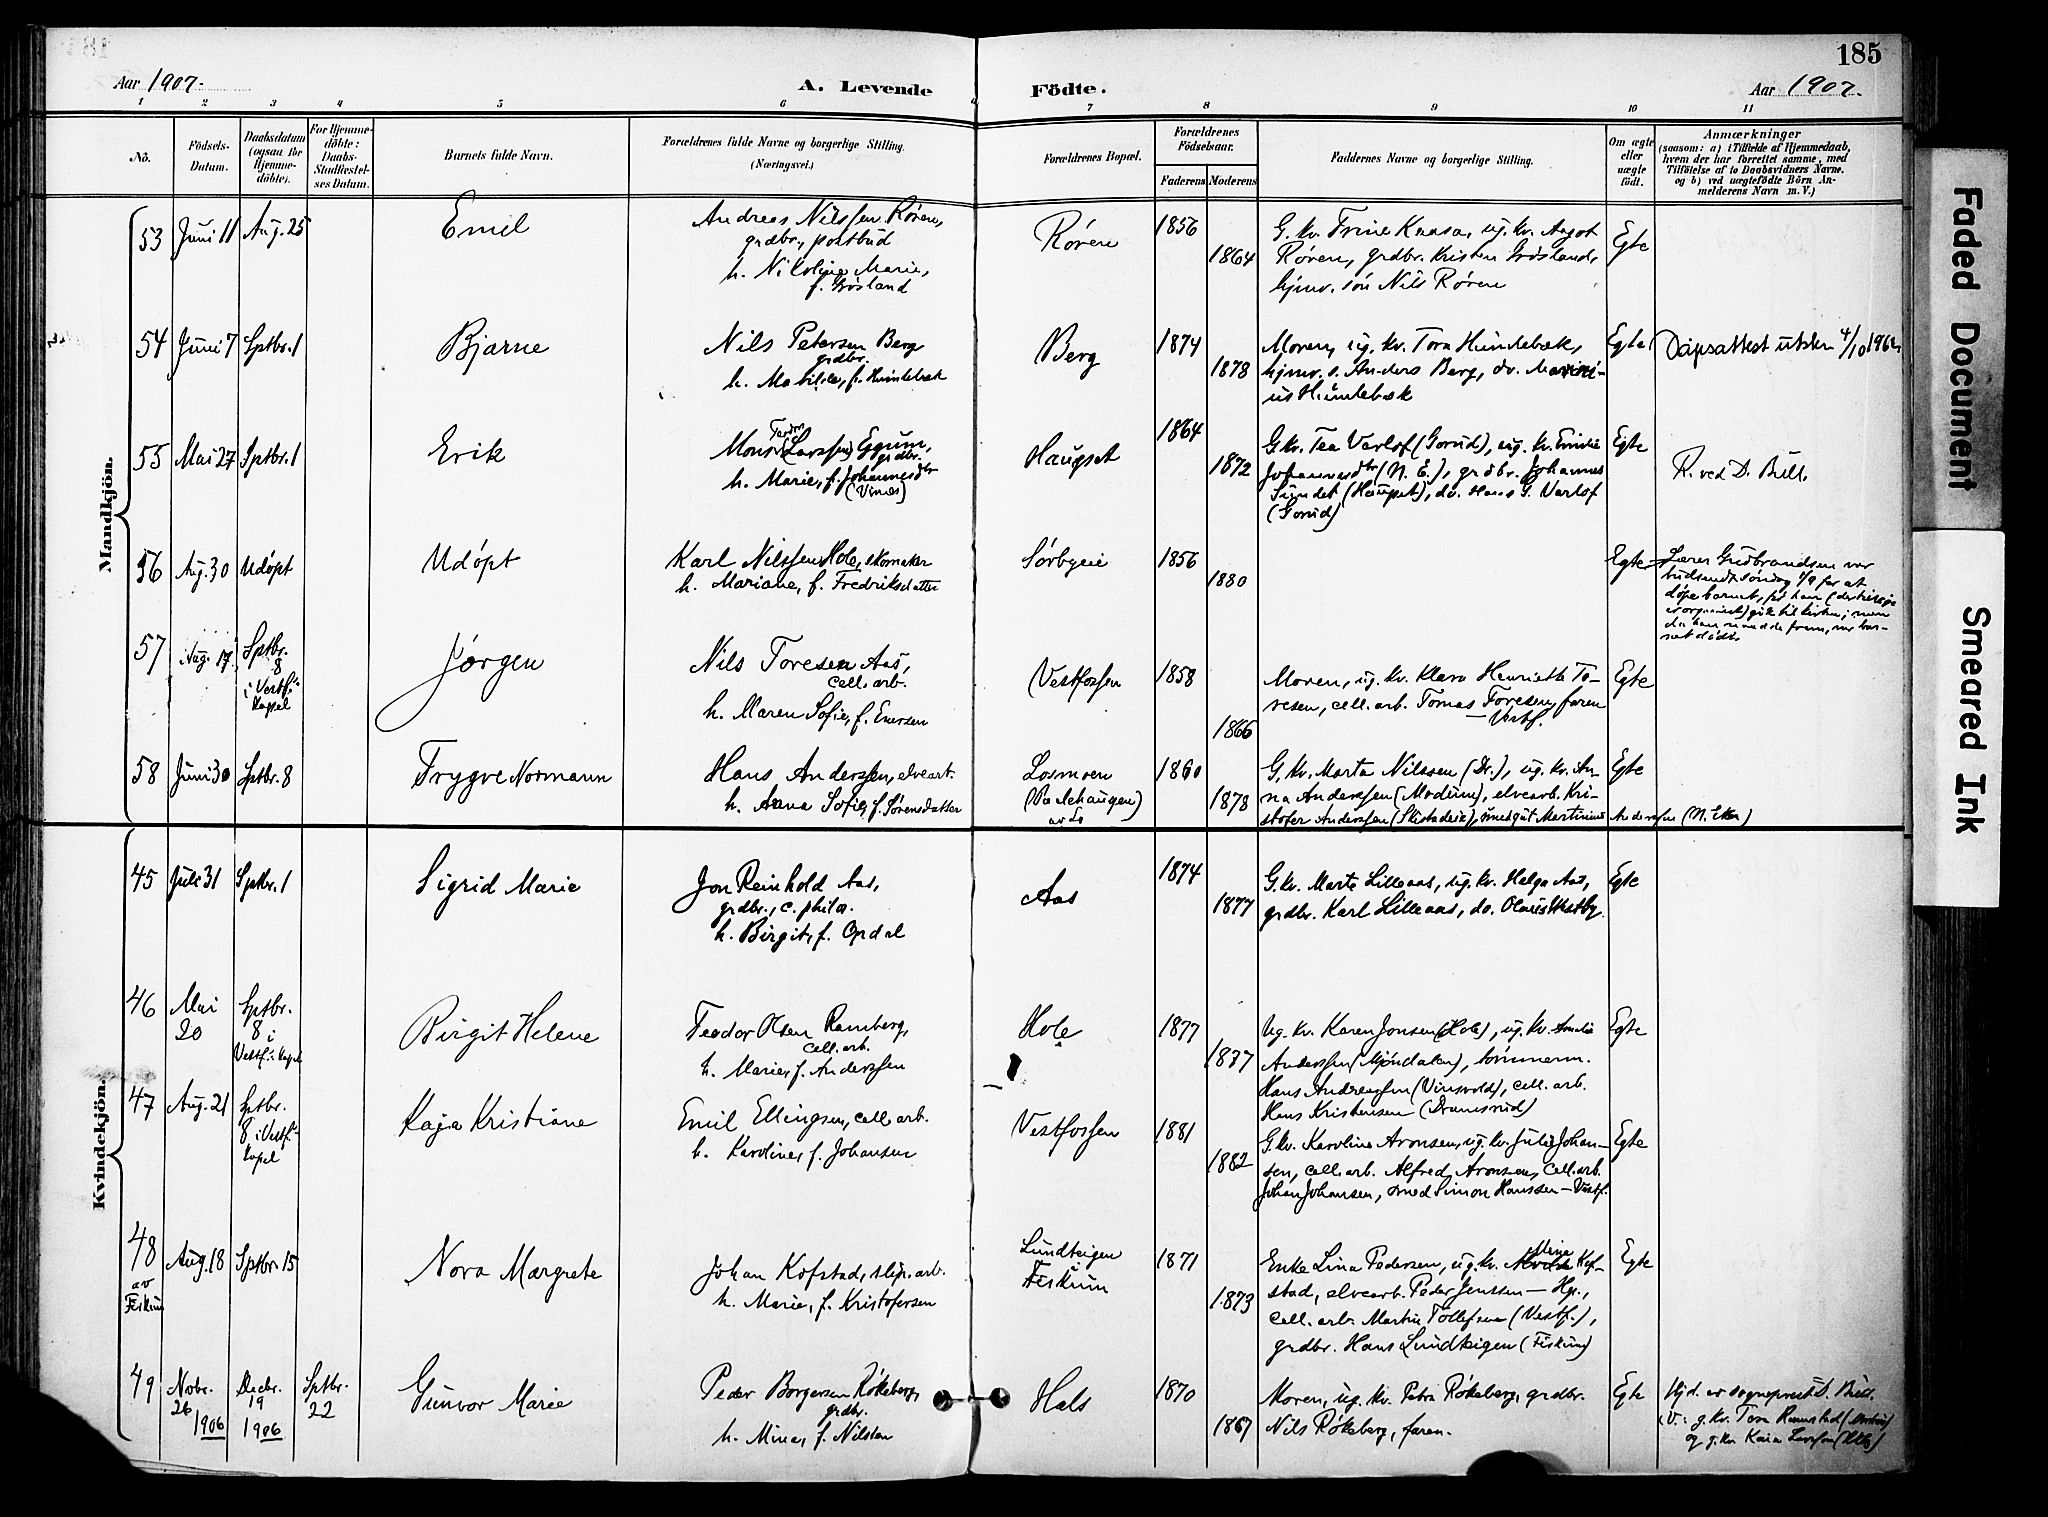 185
Aar 1907.
A. Levende Födte.
Aar 1907.
1 2 3 4 5 6 7 8 9 10 11
No.
Födsels-Datum.
Daabsdatum (ogsaa for Hjemme-döbte).
For Hjemme-döbte: Daabs-Stadfæstel-ses Datum.
Barnets fulde Navn.
Forældrenes fulde Navne og borgerlige Stilling.
(Næringsvei.)
Forældrenes Bopæl.
Forældrenes Födselsaar.
Faderens. Moderens.
Faddernes Navne og borgerlige Stilling.
Om ægte eller uægte födt.
Anmærkninger
(saasom: a) i Tilfælde af Hjemmedaab,
hvem der har forrettet samme, med
Tilföielse af to Daabsvidners Navne.
og b) ved uægtefödte Börn An-
melderens Navn m. V.)
Mandkjön.
53 Juni 11 Aug. 25
Emil
Andreas Nilssen Røren,
grdbr., postbud
h. Nikoline Marie,
f. Grøsland
Røren
1856
1864
G. kv. Trine Kaasa, ug. kv. Aagot
Røren, grdbr. Kristen Grøsland,
hjmv. søn Nils Røren
Egte
54 Juni 7 Sptbr. 1
Bjarne
Nils Petersen Berg
grdbr.
h. Mathilde, f. Hundebæk
Berg
1874
1878
Moren, ug. kv. Tora Hundebæk,
hjmv. s. Anders Berg, do. Marini-
us Hundebæk
Egte
Dåpsattest utsten 4/10 1962
55 Mai 27 Sptbr. 1
Erik
Mons (Larssen) Eggum,
grdbr.
h. Marie, f. Johannesdtr
(Vinnes)
Haugset
1864
1872
G. kv. Tea Varlof (Gorud), ug. kv. Emilie
Johannesdtr (N. E.), grdbr. Johannes
Sundet (Haugset), do. Hans G. Varlof
(Gorud)
Egte
R. ved D. Bull.
56 Aug. 30 Udøpt
Udøpt
Karl Nilssen Hole, skomaker
h. Mariane, f. Fredriksdatter
Sørbyeie
1856
1880
Egte
Lærer Gudbrandsen var
budsendt søndag 1/9 for at
døpe barnet, før han
gik til kirken; men
da han naadde frem, var bar-
net dødt.
57 Aug. 17 Sptbr. 8 i Vestf. Kapel
Jørgen
Nils Toresen Aas,
cell. arb.
h. Maren Sofie, f. Enersen
Vestfossen
1858
1866
Moren, ug. kv. Klara Henriette To-
resen, cell. arb. Tomas Toresen, faren
— Vestf.
Egte
58 Juni 30 Sptbr. 8
Trygve Normann
Hans Anderssen, elvearb.
h. Anna Sofie, f. Sørensdatter
Losmoen
av Lo
1860
1878
G. kv. Marta Nilssen (Dr.), ug. kv. An-
na Anderssen (Modum), elvearb. Kri-
stofer Anderssen, smedgut Martinius Anderssen (N. Eker)
Egte
Kvindekjön.
45 Juli 31 Sptbr. 1
Sigrid Marie
Jon Reinhold Aas,
grdbr., c. philos.
h. Birgit, f. Opdal
Aas
1874
1877
G. kv. Marte Lilleaas, ug. kv. Helga Aas,
grdbr. Karl Lilleaas, do. Olaus Westby.
Egte
46 Mai 20 Sptbr. 8 i Vestf. Kapel
Birgit Helene
Teodor Olsen Ramberg,
cell. arb.
h. Marie, f. Anderssen
Hole
1877
1877
Ug. kv. Karen Jonsen (Hole), ug. kv. Amalie
Anderssen (Mjøndalen), tømmerm.
Hans Andreassen (Vinsvold), cell. arb.
Hans Kristensen (Dramsrud)
Egte
47 Aug. 21 Sptbr. 8 i Vestf. Kapel
Kaja Kristiane
Emil Ellingsen, cell. arb.
h. Karoline, f. Johansen
Vestfossen
1881
1882
G. kv. Karoline Aronsen, ug. kv. Julie Johan-
sen, cell. arb. Alfred Aronsen, cell. arb.
Johan Johansen, smed Simon Hanssen — Vestf.
Egte
48 av Fiskum Aug. 18 Sptbr. 15
Nora Margrete
Johan Kofstad, slip. arb.
h. Marie, f. Kristofersen
Lundteigen
Fiskum
1871
1873
Enke Lina Pedersen, ug. kv. Mina Kof-
stad, elvearb. Peder Jenssen — Hp.,
cell. arb. Martin Tollefsen (Vestf.),
grdbr. Hans Lundteigen (Fiskum)
Egte
49 Novbr. 26 1906 Decbr. 19 1906 Sptbr. 22
Gunvor Marie
Peder Borgersen Røkeberg,
grdbr.
h. Mina, f. Nilsen
Hals
1870
1867
Moren, ug. kv. Petra Røkeberg, grdbr.
Nils Røkeberg, faren.
Egte
Hjd. av sogneprest D. Bull.
V.: g. kv. Tora Ramstad
og g. kv. Kaia Larssen (Hals)
Faded Document
Smeared Ink